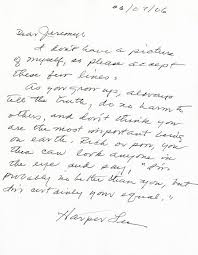 06/07/06
Dear Jeremy
I don't have a picture
of myself, so please accept
these few lines:
As you grow up, always
tell the truth, do no harm to
others, and don't think you
are the most important being
on earth. Rich or poor, you
then can look anyone in
the eye and say, "I'm
probably no better than you, but
I'm certainly your equal."
Harper Lee